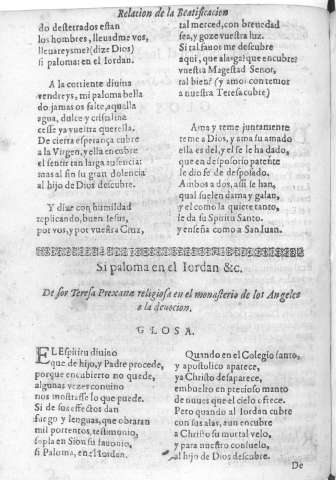 Relacion de la Beatificacion
do desterrados estan
los hombres, lleuadme vos,
lleuareysme? (dize Dios)
si paloma: en el Iordan.
A la corriente diuina
vendreys, mi paloma bella
do jamas os falte, aquella
agua, dulce y cristalina
cesse ya vuestra querella.
De cierta esperança cubre
a la Virgen, y ella encubre
el sentir tan larga ausencia:
mas al fin su gran dolencia
al hijo de Dios descubre.
Y dize con humildad
replicando, buen Iesus,
por vos, y por vuestra Cruz,
tal merced, con breuedad
sea, y goze vuestra luz.
Si tal fauor me descubre
aqui, que alarga? que encubre?
vuestra Magestad Señor,
tal bien? (y amor con temor
a nuestra Teresa cubre)
Ama y teme juntamente
teme a Dios, y ama su amado
ella es del, y el se le ha dado,
que en desposorio patente
le dio fe de desposado.
Ambos a dos, assi le han,
qual suelen dama y galan,
y el como la quiere tanto,
le da su Spiritu Santo.
y enseña como a San Iuan.
Si paloma en el Iordan &c.
De sor Teresa Prexana religiosa en el monasterio de los Angeles
a la deuocion.
GLOSA.
EL Espiritu diuino
que de hijo, y Padre procede,
porque encubierto no quede,
algunas vezes conuino
nos mostrasse lo que puede.
Si de sus effectos dan
fuego y lenguas, que obraran
mil portentos, testimonio,
sopla en Sion su fauonio,
si Paloma, en el Iordan.
Quando en el Colegio santo,
y apostolico aparece,
ya Christo desaparece,
embuelto en precioso manto
de nuues que el cielo ofrece.
Pero quando al Iordan cubre
con sus alas, aun encubre
a Christo su mortal velo,
y para nuestro consuelo,
al hijo de Dios descubre.
De